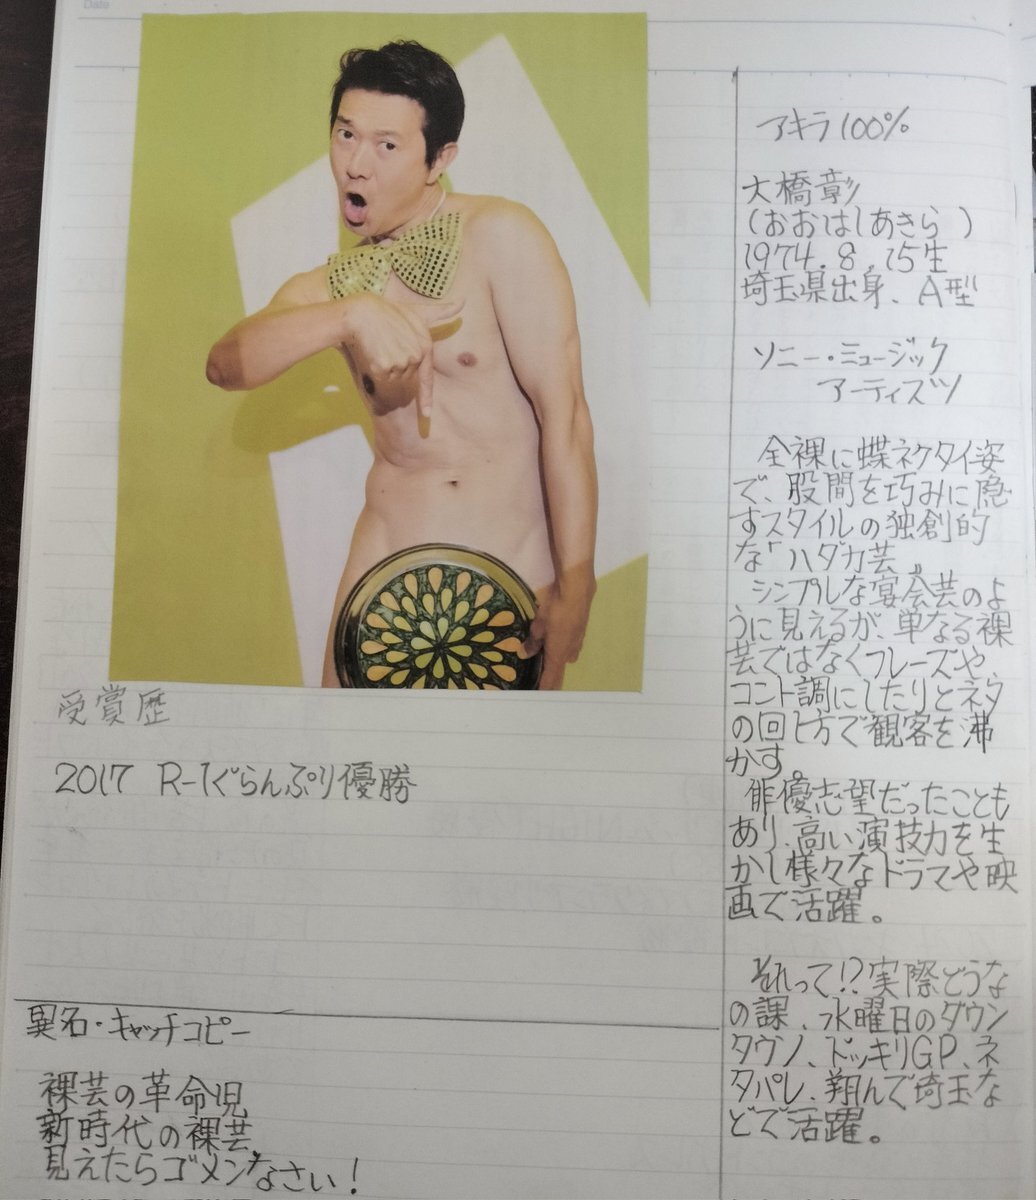 Date
アキラ100%
大橋彰
(おおはしあきら)
1974.8.15生
埼玉県出身、A型
ソニー・ミュージック
アーティズツ
全裸に蝶ネクタイ姿
で、股間を巧みに隠
すスタイルの独創的
な「ハダカ芸」。
シンプルな宴会芸のよ
うに見えるが、単なる裸
芸ではなくフレーズや、
コント調にしたりとネタ
の回し方で観客を沸
かす。
俳優志望だったことも
あり、高い演技力を生
かし様々なドラマや映
画で活躍。
それって!?実際どうな
の課、水曜日のダウン
タウン、ドッキリGP、ネ
タパレ、翔んで埼玉な
どで活躍。
受賞歴
2017 R-1ぐらんぷり優勝
異名・キャッチコピー
裸芸の革命児
新時代の裸芸
見えたらゴメンなさい!